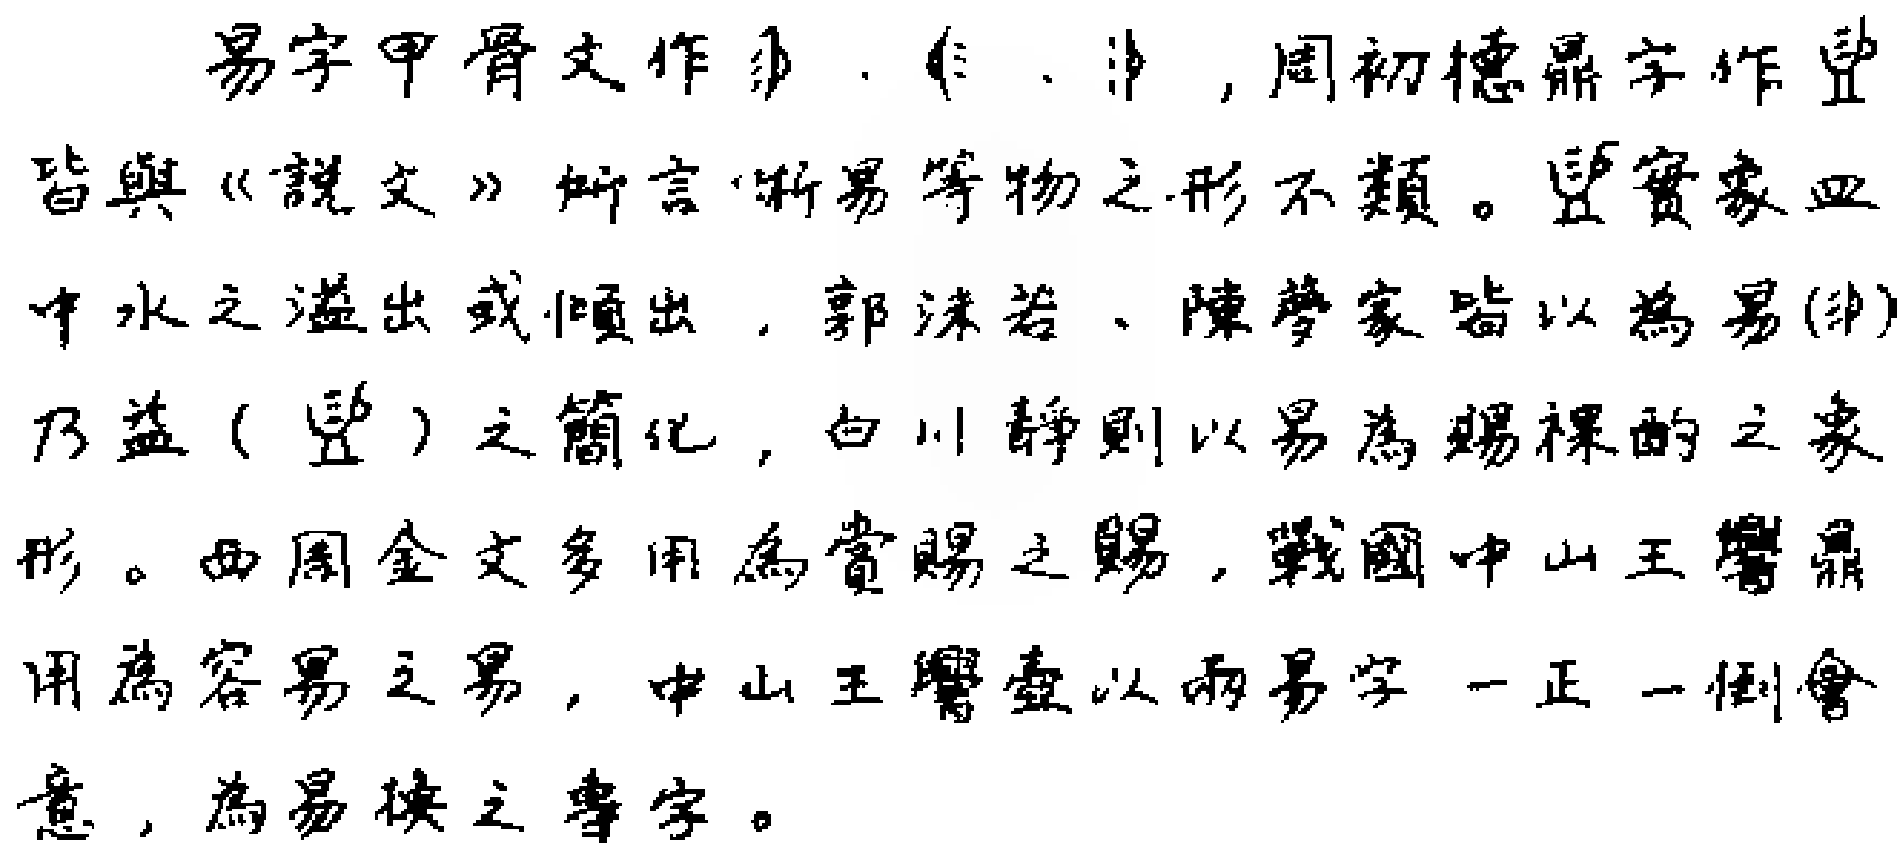 易字甲骨文作、、,周初德鼎字作
皆與《說文》所言蜥易等物之形不類。實象皿
中水之溢出或傾出,郭沫若、陳夢家皆以為易()
乃益()之簡化,白川靜則以易為賜祼酌之象
形。西周金文多用為賞賜之賜,戰國中山王鼎
用為容易之易,中山王壺以兩易字一正一倒會
意,為易換之專字。